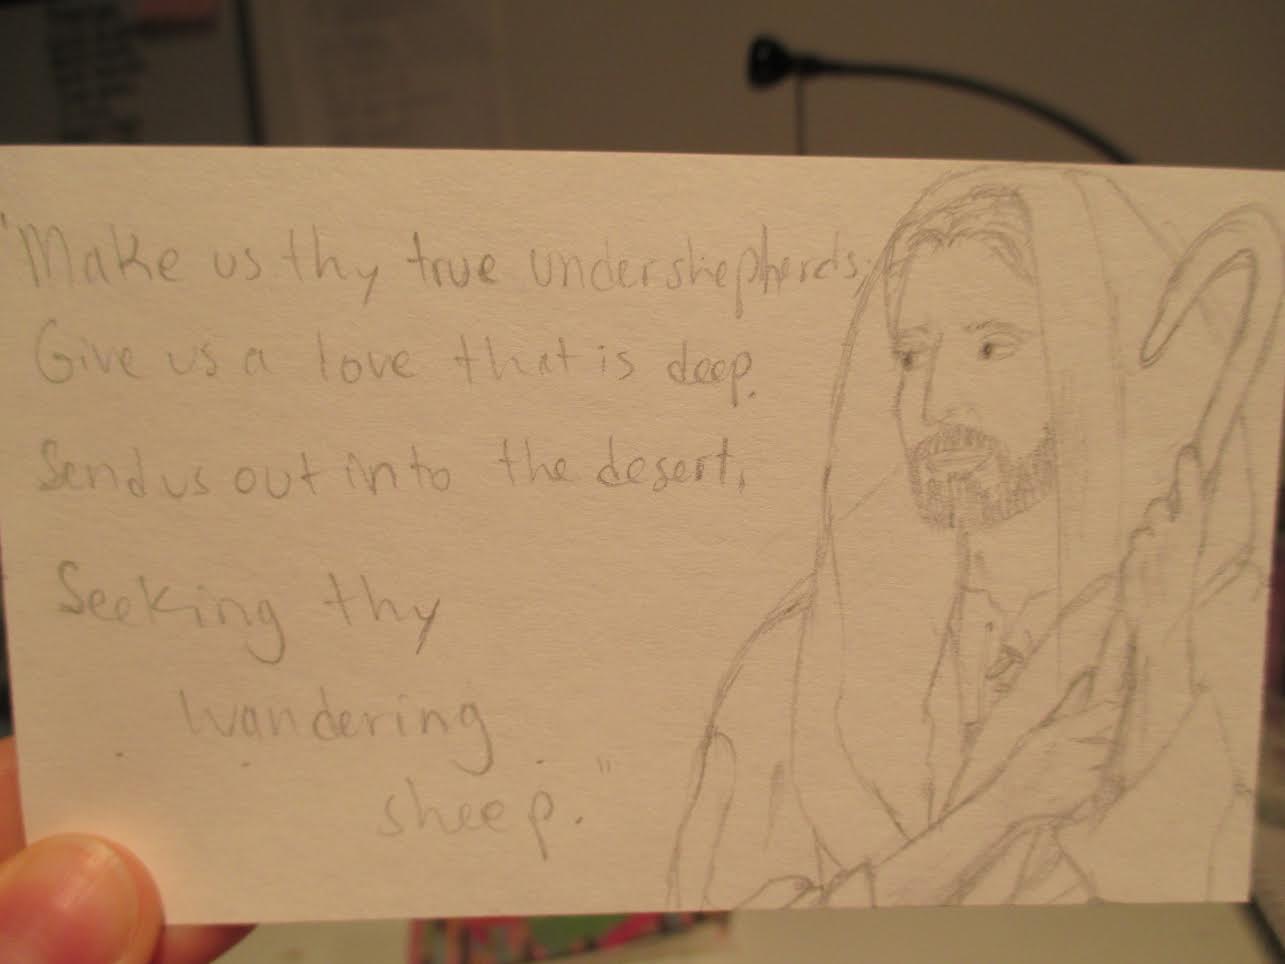 "Make us thy true undershepherds;
Give us a love that is deep.
Send us out into the desert,
Seeking thy
wandering
sheep."